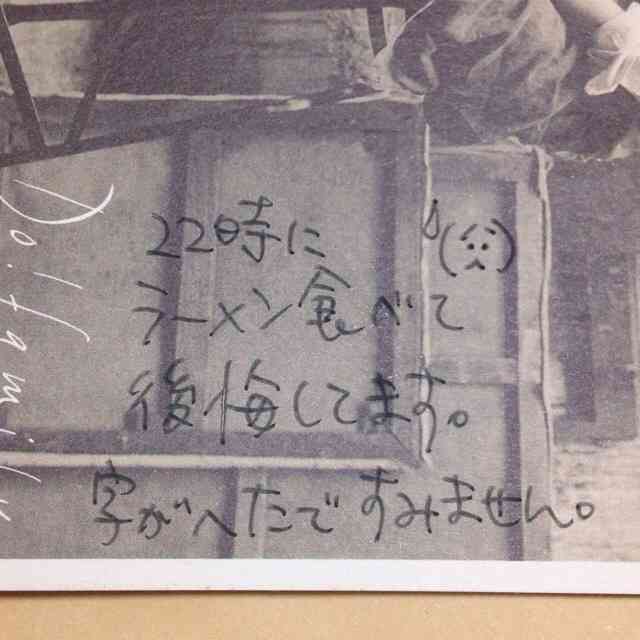 22時に
ラーメン食べて
後悔してます。
字がへたですみません。